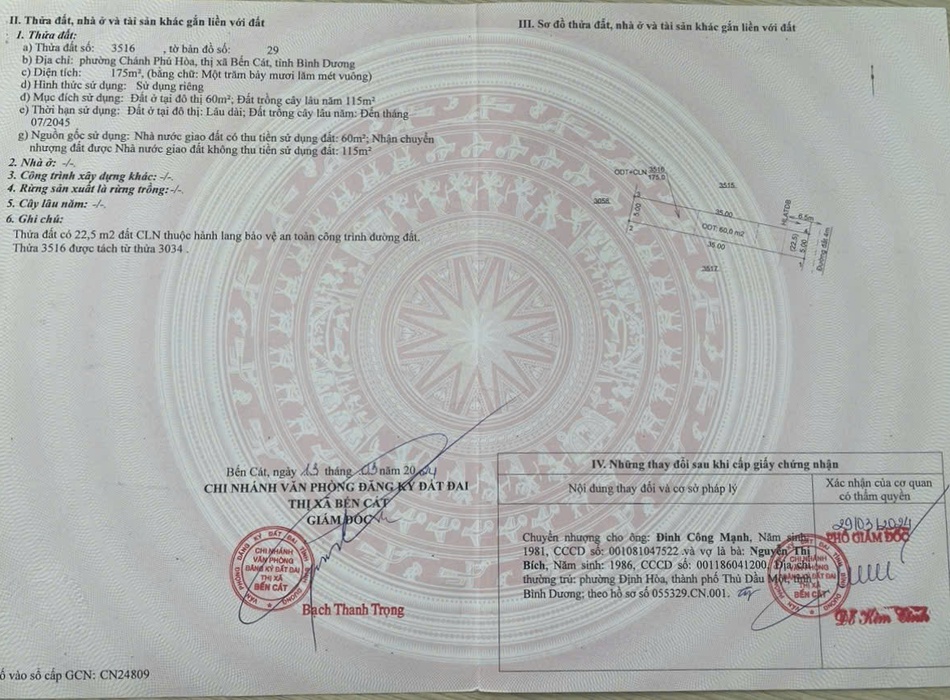 II. Thửa đất, nhà ở và tài sản khác gắn liền với đất
1. Thửa đất:
a) Thửa đất số: 3516 , tờ bản đồ số: 29
b) Địa chỉ: phường Chánh Phú Hòa, thị xã Bến Cát, tỉnh Bình Dương
c) Diện tích: 175m², (bằng chữ: Một trăm bảy mươi lăm mét vuông)
d) Hình thức sử dụng: Sử dụng riêng
đ) Mục đích sử dụng: Đất ở tại đô thị 60m²; Đất trồng cây lâu năm 115m²
e) Thời hạn sử dụng: Đất ở tại đô thị: Lâu dài; Đất trồng cây lâu năm: Đến tháng
07/2045
g) Nguồn gốc sử dụng: Nhà nước giao đất có thu tiền sử dụng đất: 60m²; Nhận chuyển
nhượng đất được Nhà nước giao đất không thu tiền sử dụng đất: 115m²
2. Nhà ở: -/-
3. Công trình xây dựng khác: -/-
4. Rừng sản xuất là rừng trồng:-/-
5. Cây lâu năm: -/-
6. Ghi chú:
Thửa đất có 22,5 m2 đất CLN thuộc hành lang bảo vệ an toàn công trình đường đất.
Thửa 3516 được tách từ thửa 3034 .
Bến Cát, ngày 13 tháng 03 năm 2024
CHI NHÁNH VĂN PHÒNG ĐĂNG KÝ ĐẤT ĐAI
THỊ XÃ BẾN CÁT
GIÁM ĐỐC
VĂN PHÒNG ĐĂNG KÝ ĐẤT ĐAI TỈNH BÌNH DƯƠNG
CHI NHÁNH
VĂN PHÒNG
ĐĂNG KÝ ĐẤT ĐAI
THỊ XÃ
BẾN CÁT
Bạch Thanh Trọng
số vào sổ cấp GCN: CN24809
III. Sơ đồ thửa đất, nhà ở và tài sản khác gắn liền với đất
ODT+CLN 3516
175.0
3515
3058
5.00
2
35.00
ODT: 60,0 m2
35.00
3517
HLATĐB
6.5m
(22,5)
5.00
Đường đất 4m
IV. Những thay đổi sau khi cấp giấy chứng nhận
Nội dung thay đổi và cơ sở pháp lý
Xác nhận của cơ quan
có thẩm quyền
Chuyển nhượng cho ông: Đinh Công Mạnh, Năm sinh:
1981, CCCD số: 001081047522 và vợ là bà: Nguyễn Thị
Bích, Năm sinh: 1986, CCCD số: 001186041200, Địa chỉ
thường trú: phường Định Hòa, thành phố Thủ Dầu Một, tỉnh
Bình Dương; theo hồ sơ số 055329.CN.001.
29/03/2024
PHÓ GIÁM ĐỐC
CHI NHÁNH
VĂN PHÒNG
ĐĂNG KÝ ĐẤT ĐAI
THỊ XÃ
BẾN CÁT